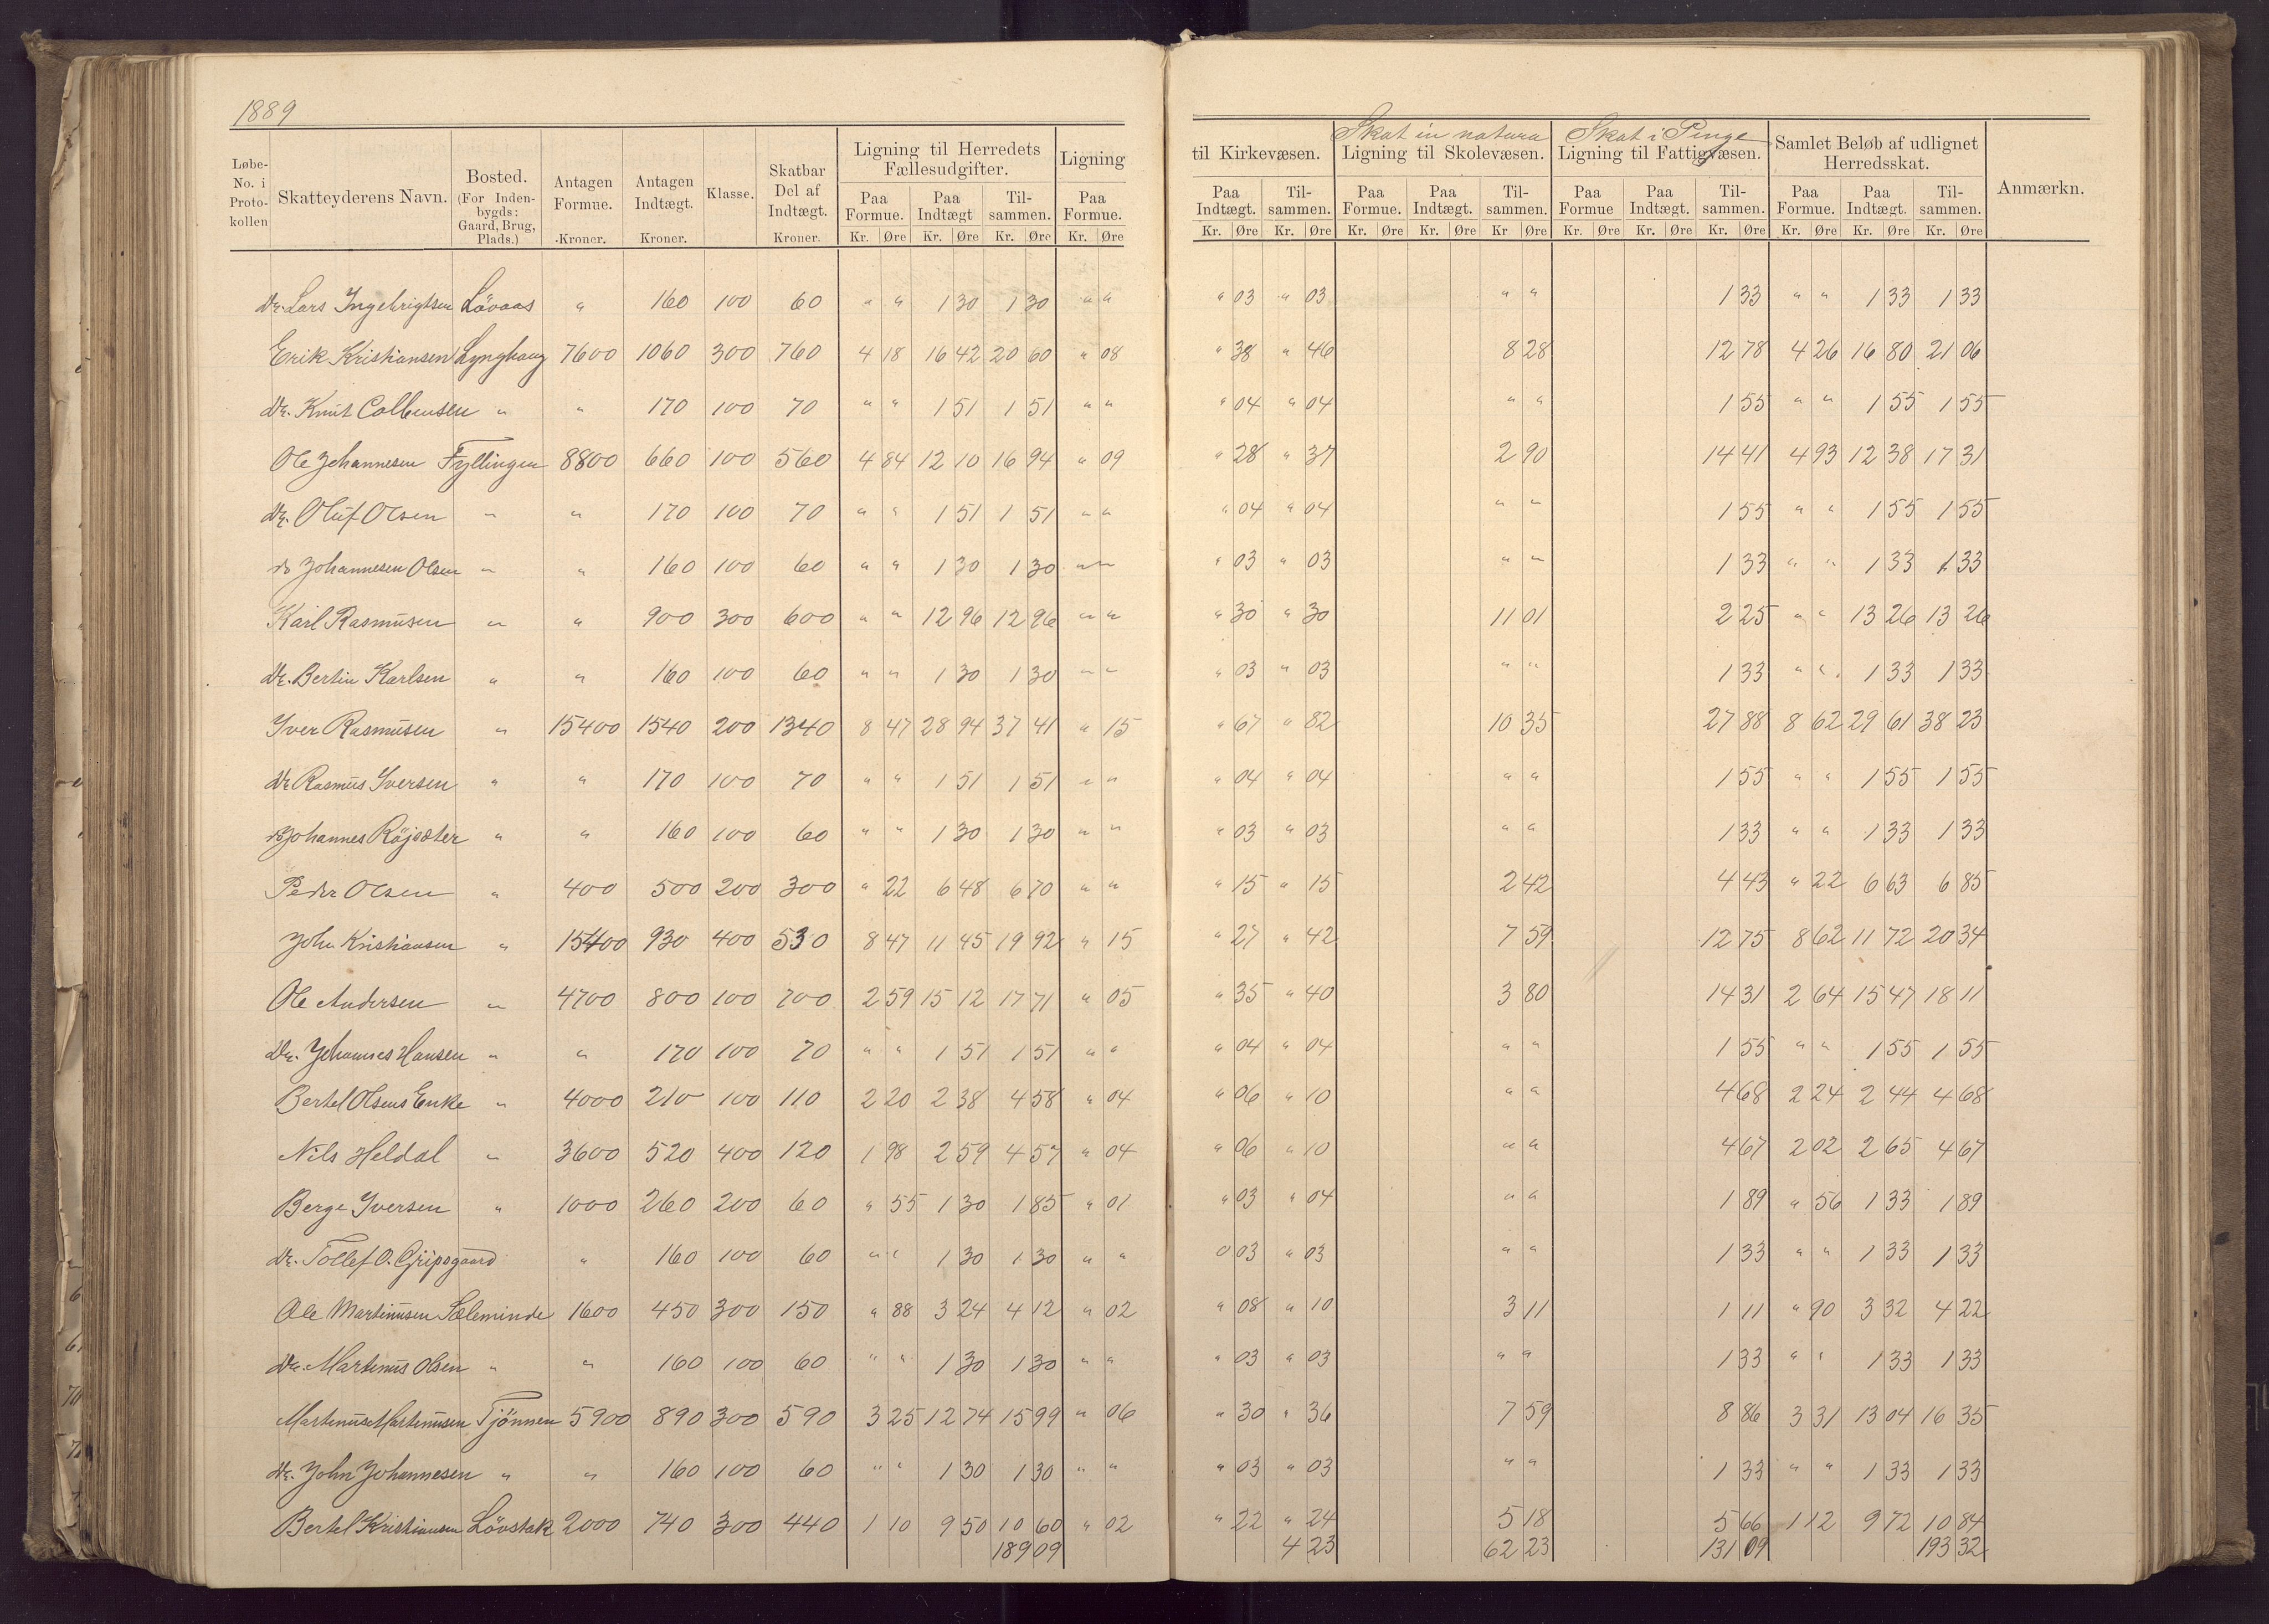 1889
Løbe-No. i Proto-kollen | Skatteyderens Navn. | Bosted. (For Inden-bygds: Gaard, Brug, Plads.) | Antagen Formue. Kroner. | Antagen Indtægt. Kroner. | Klasse. | Skatbar Del af Indtægt. Kroner. | Ligning til Herredets Fællesudgifter. Paa Formue. Kr. Øre | Paa Indtægt Kr. Øre | Til-sammen. Kr. Øre | Ligning Paa Formue. Kr. Øre | til Kirkevæsen. Paa Indtægt. Kr. Øre | Til-sammen. Kr. Øre | Skat in natura Ligning til Skolevæsen. Paa Formue. Kr. Øre | Paa Indtægt. Kr. Øre | Til-sammen. Kr Øre | Skat i Penge Ligning til Fattigvæsen. Paa Formue Kr. Øre | Paa Indtægt. Kr. Øre | Til-sammen. Kr. Øre | Samlet Beløb af udlignet Herredsskat. Paa Formue. Kr. Øre | Paa Indtægt. Kr. Øre | Til-sammen. Kr. Øre | Anmærkn.
Dr. Lars Ingebrigtsen Lövaas " 160 100 60 " " 1 30 1 30 " " " 03 " 03 " " 1 33 " " 1 33 1 33
Erik Kristiansen Lynghaug 7600 1060 300 760 4 18 16 42 20 60 " 08 " 38 " 46 8 28 12 78 4 26 16 80 21 06
Dr. Knut Colbensen " " 170 100 70 " " 1 51 1 51 " " " 04 " 04 " " 1 55 " " 1 55 1 55
Ole Johannesen Fyllingen 8800 660 100 560 4 84 12 10 16 94 " 09 " 28 " 37 2 90 14 41 4 93 12 38 17 31
Dr. Oluf Olsen " " 170 100 70 " " 1 51 1 51 " " " 04 " 04 " " 1 55 " " 1 55 1 55
do Johannesen Olsen " " 160 100 60 " " 1 30 1 30 " " " 03 " 03 " " 1 33 " " 1 33 1 33
Karl Rasmusen " " 900 300 600 " " 12 96 12 96 " " " 30 " 30 11 01 2 25 " " 13 26 13 26
Dr. Bertin Karlsen " " 160 100 60 " " 1 30 1 30 " " " 03 " 03 " " 1 33 " " 1 33 1 33
Iver Rasmusen " 15400 1540 200 1340 8 47 28 94 37 41 " 15 " 67 " 82 10 35 27 88 8 62 29 61 38 23
Dr Rasmus Iversen " " 170 100 70 " " 1 51 1 51 " " " 04 " 04 " " 1 55 " " 1 55 1 55
do Johannes Röjsæter " " 160 100 60 " " 1 30 1 30 " " " 03 " 03 " " 1 33 " " 1 33 1 33
Peder Olsen " 400 500 200 300 " 22 6 48 6 70 " " " 15 " 15 2 42 4 43 " 22 6 63 6 85
John Kristiansen " 15400 930 400 530 8 47 11 45 19 92 " 15 " 27 " 42 7 59 12 75 8 62 11 72 20 34
Ole Andersen " 4700 800 100 700 2 59 15 12 17 71 " 05 " 35 " 40 3 80 14 31 2 64 15 47 18 11
Dr. Johannes Hansen " " 170 100 70 " " 1 51 1 51 " " " 04 " 04 " " 1 55 " " 1 55 1 55
Bertel Olsens Enke " 4000 210 100 110 2 20 2 38 4 58 " 04 " 06 " 10 " " 4 68 2 24 2 44 4 68
Nils Heldal " 3600 520 400 120 1 98 2 59 4 57 " 04 " 06 " 10 " " 4 67 2 02 2 65 4 67
Berge Iversen " 1000 260 200 60 " 55 1 30 1 85 " 01 " 03 " 04 " " 1 89 " 56 1 33 1 89
Dr. Tollef O. Gripsgaard " 160 100 60 " " 1 30 1 30 " " 0 03 " 03 " " 1 33 " " 1 33 1 33
Ole Martinusen Sæleminde 1600 450 300 150 " 88 3 24 4 12 " 02 " 08 " 10 3 11 1 11 " 90 3 32 4 22
Dr. Martinus Olsen " " 160 100 60 " " 1 30 1 30 " " " 03 " 03 " " 1 33 " " 1 33 1 33
Martinus Martinusen Tjönnen 5900 890 300 590 3 25 12 74 15 99 " 06 " 30 " 36 7 59 8 86 3 31 13 04 16 35
Dr. John Johannesen " " 160 100 60 " " 1 30 1 30 " " " 03 " 03 " " 1 33 " " 1 33 1 33
Bertel Kristiansen Lövstak 2000 740 300 440 1 10 9 50 10 60 " 02 " 22 " 24 5 18 5 66 1 12 9 72 10 84
189 09 4 23 62 23 131 09 193 32